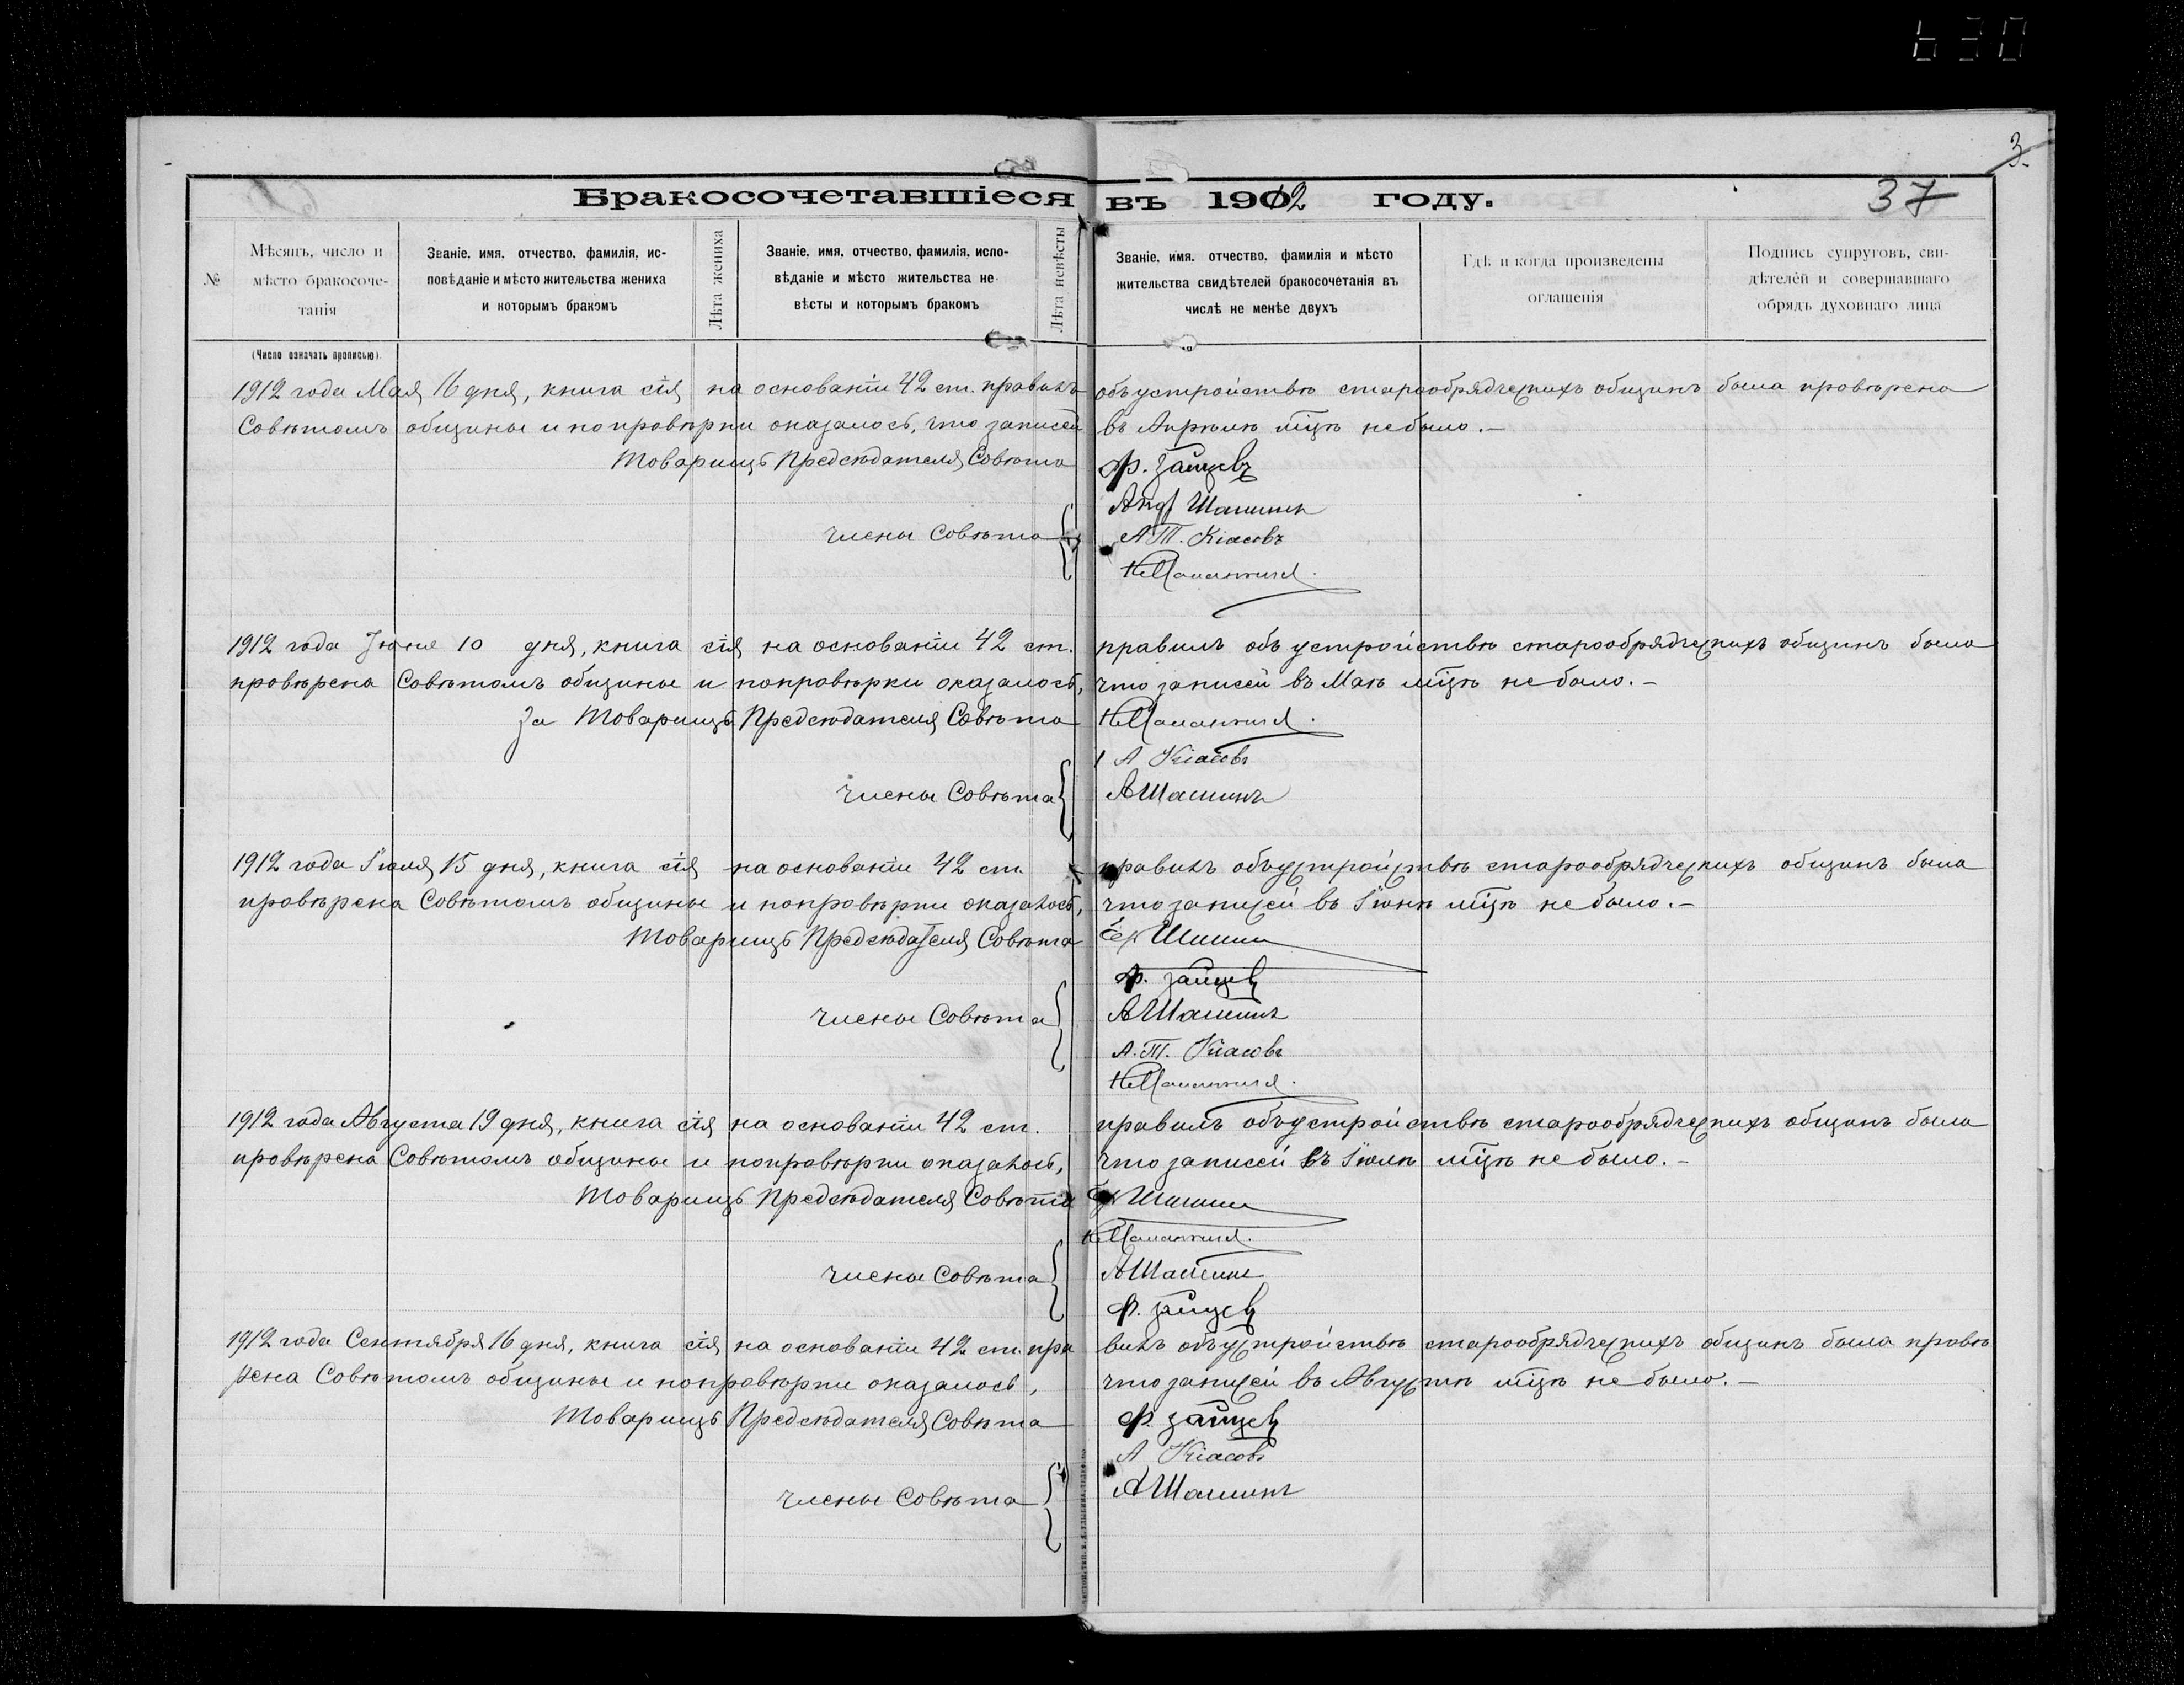 630
3
37
Бракосочетавшіеся въ 1912 году.
№
Мѣсяцъ, число и мѣсто бракосочетанія
(Число означать прописью)
Званіе, имя, отчество, фамилія, исповѣданіе и мѣсто жительства жениха и которымъ бракомъ
Лѣта жениха
Званіе, имя, отчество, фамилія, исповѣданіе и мѣсто жительства невѣсты и которымъ бракомъ
Лѣта невѣсты
Званіе, имя, отчество, фамилія и мѣсто жительства свидѣтелей бракосочетанія въ числѣ не менѣе двухъ
Гдѣ и когда произведены оглашенія
Подпись супруговъ, свидѣтелей и совершавшаго обрядъ духовнаго лица
1912 года Мая 16 дня, книга сія на основаніи 42 ст. правилъ объ устройствѣ старообрядческихъ общинъ была провѣрена
Совѣтомъ общины и по провѣрки оказалось, что записей въ Апрѣлѣ мѣсѣ не было.–
Товарищъ Предсѣдателя Совѣта Ф. Зайцевъ
Члены Совѣта Шашинъ
А Т. Кіасовъ
1912 года Іюня 10 дня, книга сія на основаніи 42 ст. правилъ объ устройствѣ старообрядческихъ общинъ была
провѣрена Совѣтомъ общины и по провѣрки оказалось, что записей въ Маѣ мѣсѣ не было.–
За Товарищъ Предсѣдателя Совѣта
А Кіасовъ
Члены Совѣта А Шашинъ
1912 года Іюля 15 дня, книга сія на основаніи 42 ст. правилъ объ устройствѣ старообрядческихъ общинъ была
провѣрена Совѣтомъ общины и по провѣрки оказалось, что записей въ Іюнѣ мѣсѣ не было.–
Товарищъ Предсѣдателя Совѣта
Ф. Зайцев
Члены Совѣта А Шашинъ
А. Т. Кіасовъ
1912 года Августа 19 дня, книга сія на основаніи 42 ст. правилъ объ устройствѣ старообрядческихъ общинъ была
провѣрена Совѣтомъ общины и по провѣрки оказалось, что записей въ Іюлѣ мѣсѣ не было.–
Товарищъ Предсѣдателя Совѣта
Члены Совѣта А Шашинъ
Ф. Зайцев
1912 года Сентября 16 дня, книга сія на основаніи 42 ст. правилъ объ устройствѣ старообрядческихъ общинъ была провѣ
рена Совѣтомъ общины и по провѣрки оказалось, что записей въ Августѣ мѣсѣ не было.–
Товарищъ Предсѣдателя Совѣта Ф. Зайцев
А Кіасовъ
Члены Совѣта А Шашинъ